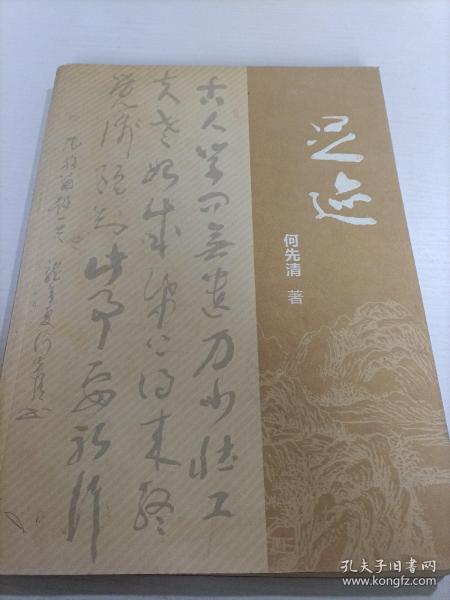 足迹
何先清 著
古人学问无遗力少壮工
夫老始成纸上得来终
觉浅绝知此事要躬行
孔夫子旧书网
www.kongfz.com